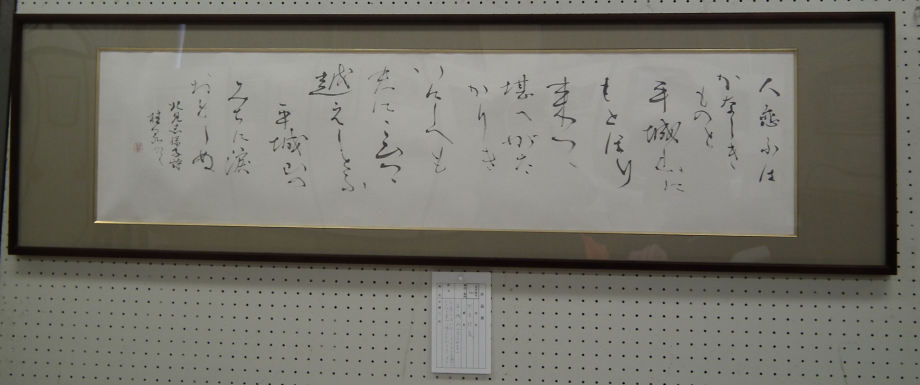 人恋ふは
かなしき
ものと
平城山に
もとほり
来つつ
堪へがた
かりき
いにしへも
夫に恋ひつつ
越えしとふ
平城山の
みちに涙
おとしぬ
北見志保子詩